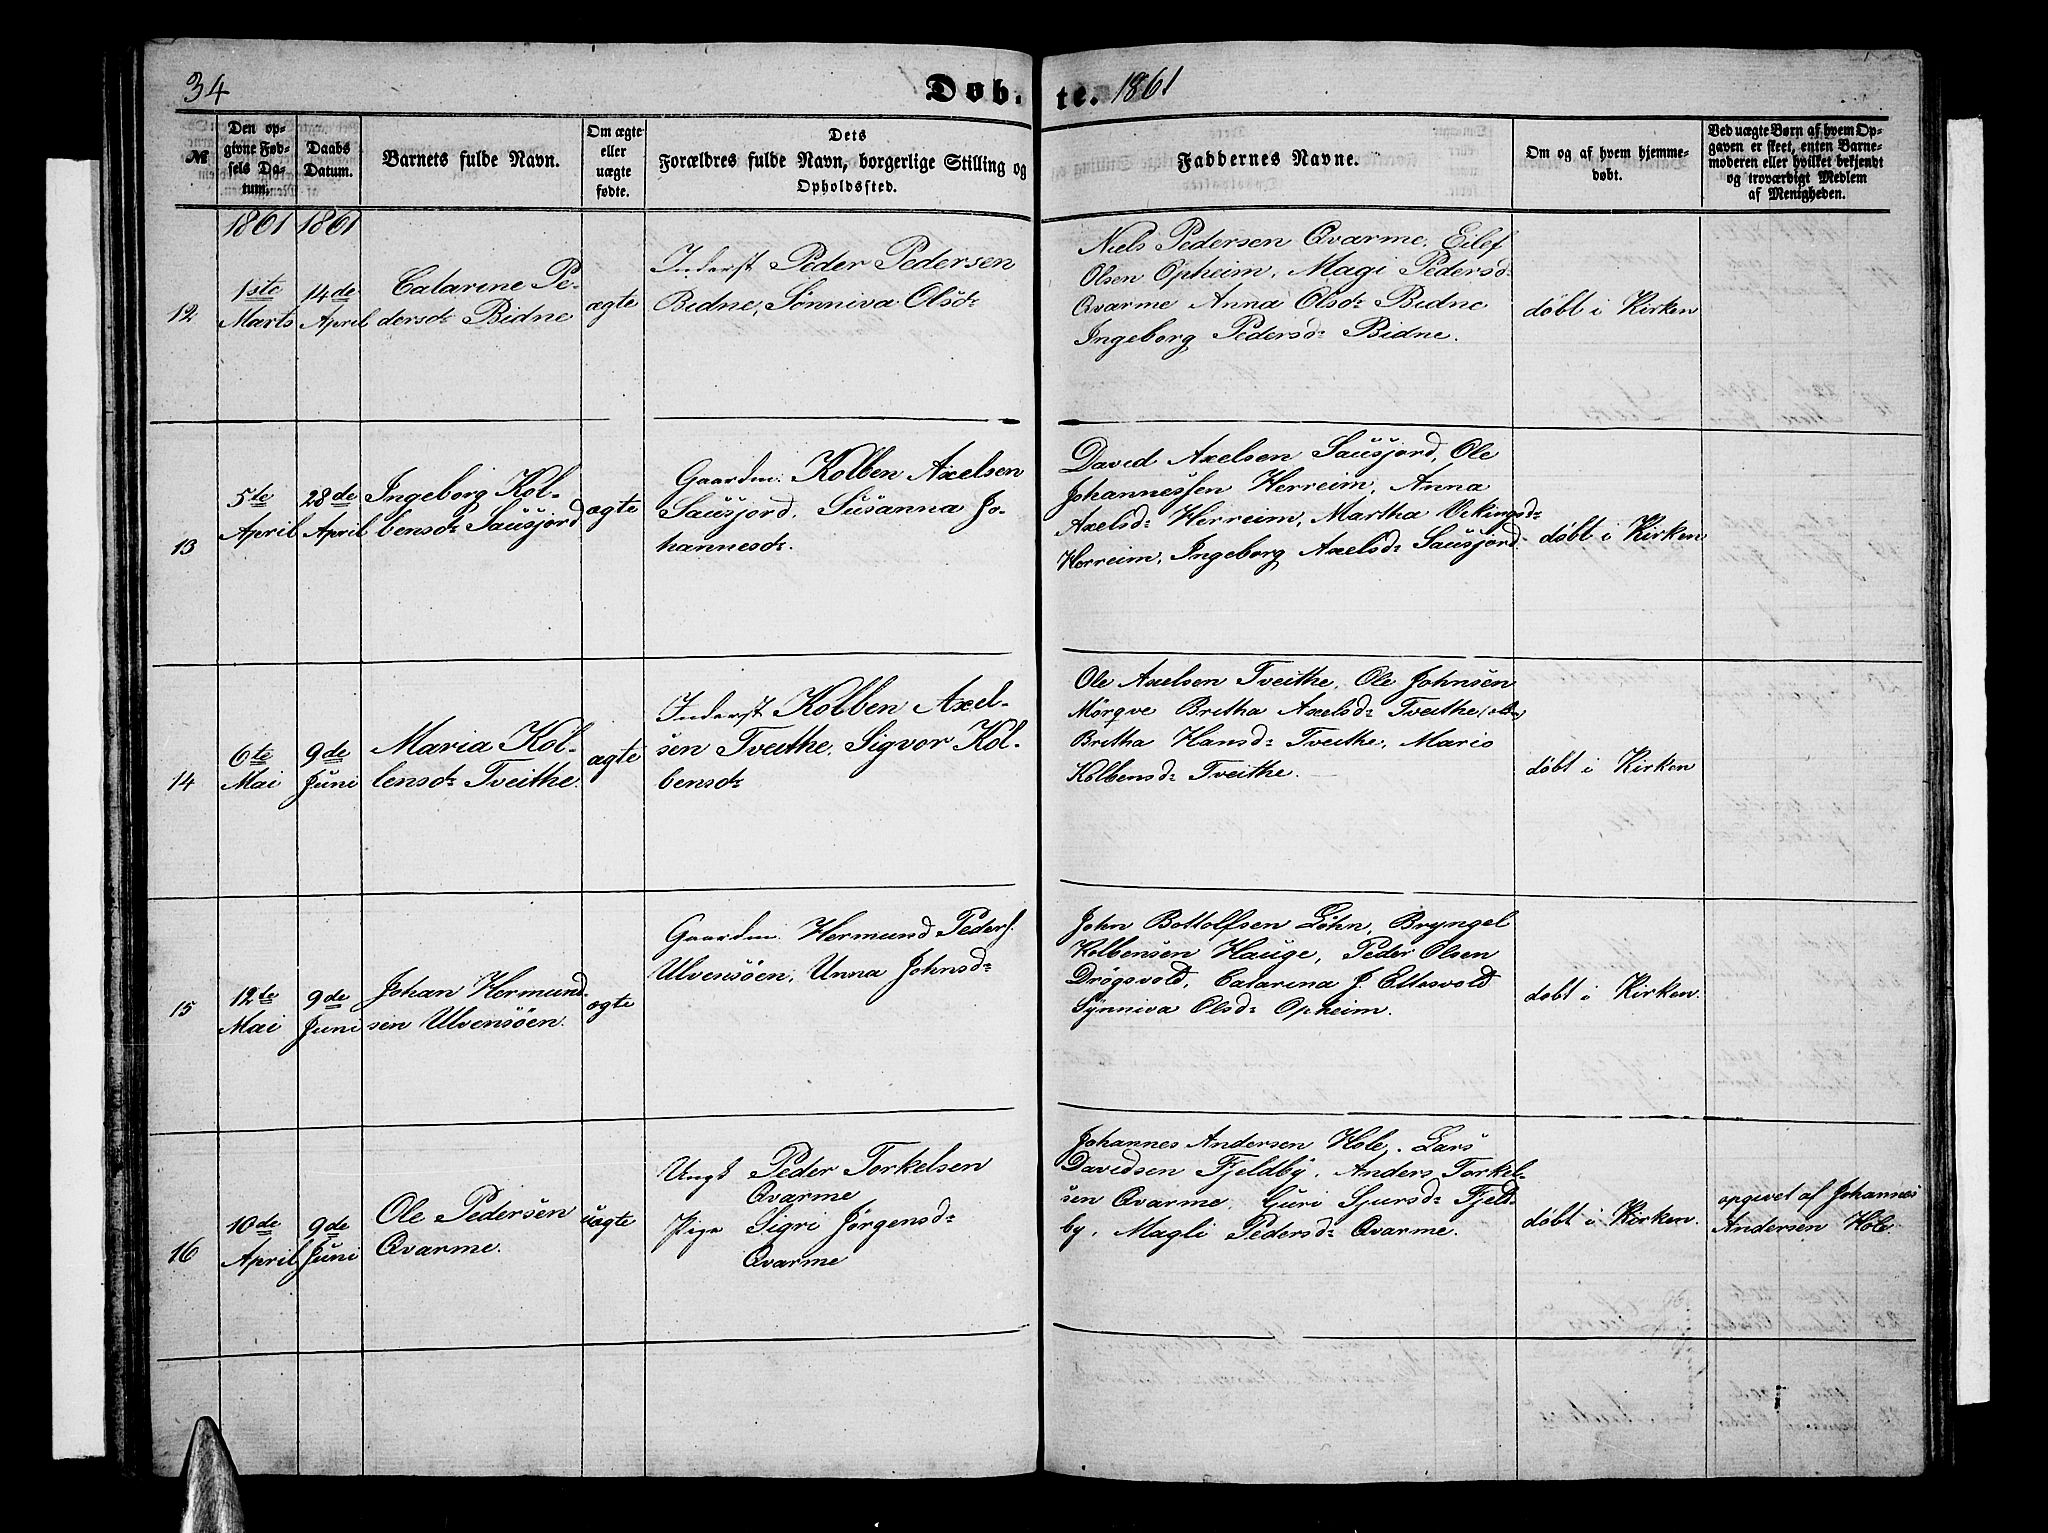 34
Døb-
te. 1861
№
Den op-
givne Fød-
sels Da-
tum.
Daabs
Datum.
Barnets fulde Navn.
Om ægte
eller
uægte
fødte.
Dets
Forældres fulde Navn, borgerlige Stilling og
Opholdssted.
Faddernes Navne.
Om og af hvem hjemme-
døbt.
Ved uægte Børn af hvem Op-
gaven er skeet, enten Barne-
moderen eller hvilket bekjendt
og troværdigt Medlem
af Menigheden.
1861 1861
12
1ste
Marts
14de
April
Catarine Pe-
dersdr Bidne
ægte
Inderst Peder Pedersen
Bidne, Sönniva Olsdr
Niels Pedersen Qvarme, Eilef
Olsen Opheim, Magi Pedersdr
Qvarme Anna Olsdr Bidne
Ingeborg Pedersdr Bidne.
døbt i Kirken
13
5te
April
28de
April
Ingeborg Kol-
bensdr Sausjord
ægte
Gaardm. Kolben Axelsen
Sausjord, Susanna Jo-
hannesdr.
David Axelsen Sausjord, Ole
Johannessen Herreim, Anna
Axelsdr Herreim, Martha Vikingsdr
Herreim, Ingeborg Axelsdr Sausjord
døbt i Kirken
14
6te
Mai
9de
Juni
Maria Kol-
bensdr Tveithe.
ægte
Inderst Kolben Axel-
sen Tveithe, Sigvor Kol-
bensdr
Ole Axelsen Tveithe, Ole Johnsen
Mörqve Britha Axelsdr Tveithe
Britha Hansdr Tveithe, Mario
Kolbensdr Tveithe.
døbt i Kirken
15
12te
Mai
9de
Juni
Johan Hermund-
sen Ulvensöen.
ægte
Gaardm. Hermund Peders.
Ulvensöen, Unna Johnsdr
John Bottolfsen Löhn, Bryngel
Kolbensen Hauge, Peder Olsen
Drögsvold, Catarina J. Ettesvold
Synniva Olsdr Opheim.
døbt i Kirken.
16
10de
April
9de
Juni
Ole Pedersen
Qvarme.
uægte
Ungk Peder Torkelsen
Qvarme
Pige Sigri Jörgensdr
Qvarme
Johannes Andersen Hole, Lars
Davidsen Fjeldby, Anders Torkel-
sen Qvarme, Guri Sjursdr Fjeld-
by, Magli Pedersdr Qvarme.
døbt i Kirken.
opgivet af Johannes
Andersen Hole.